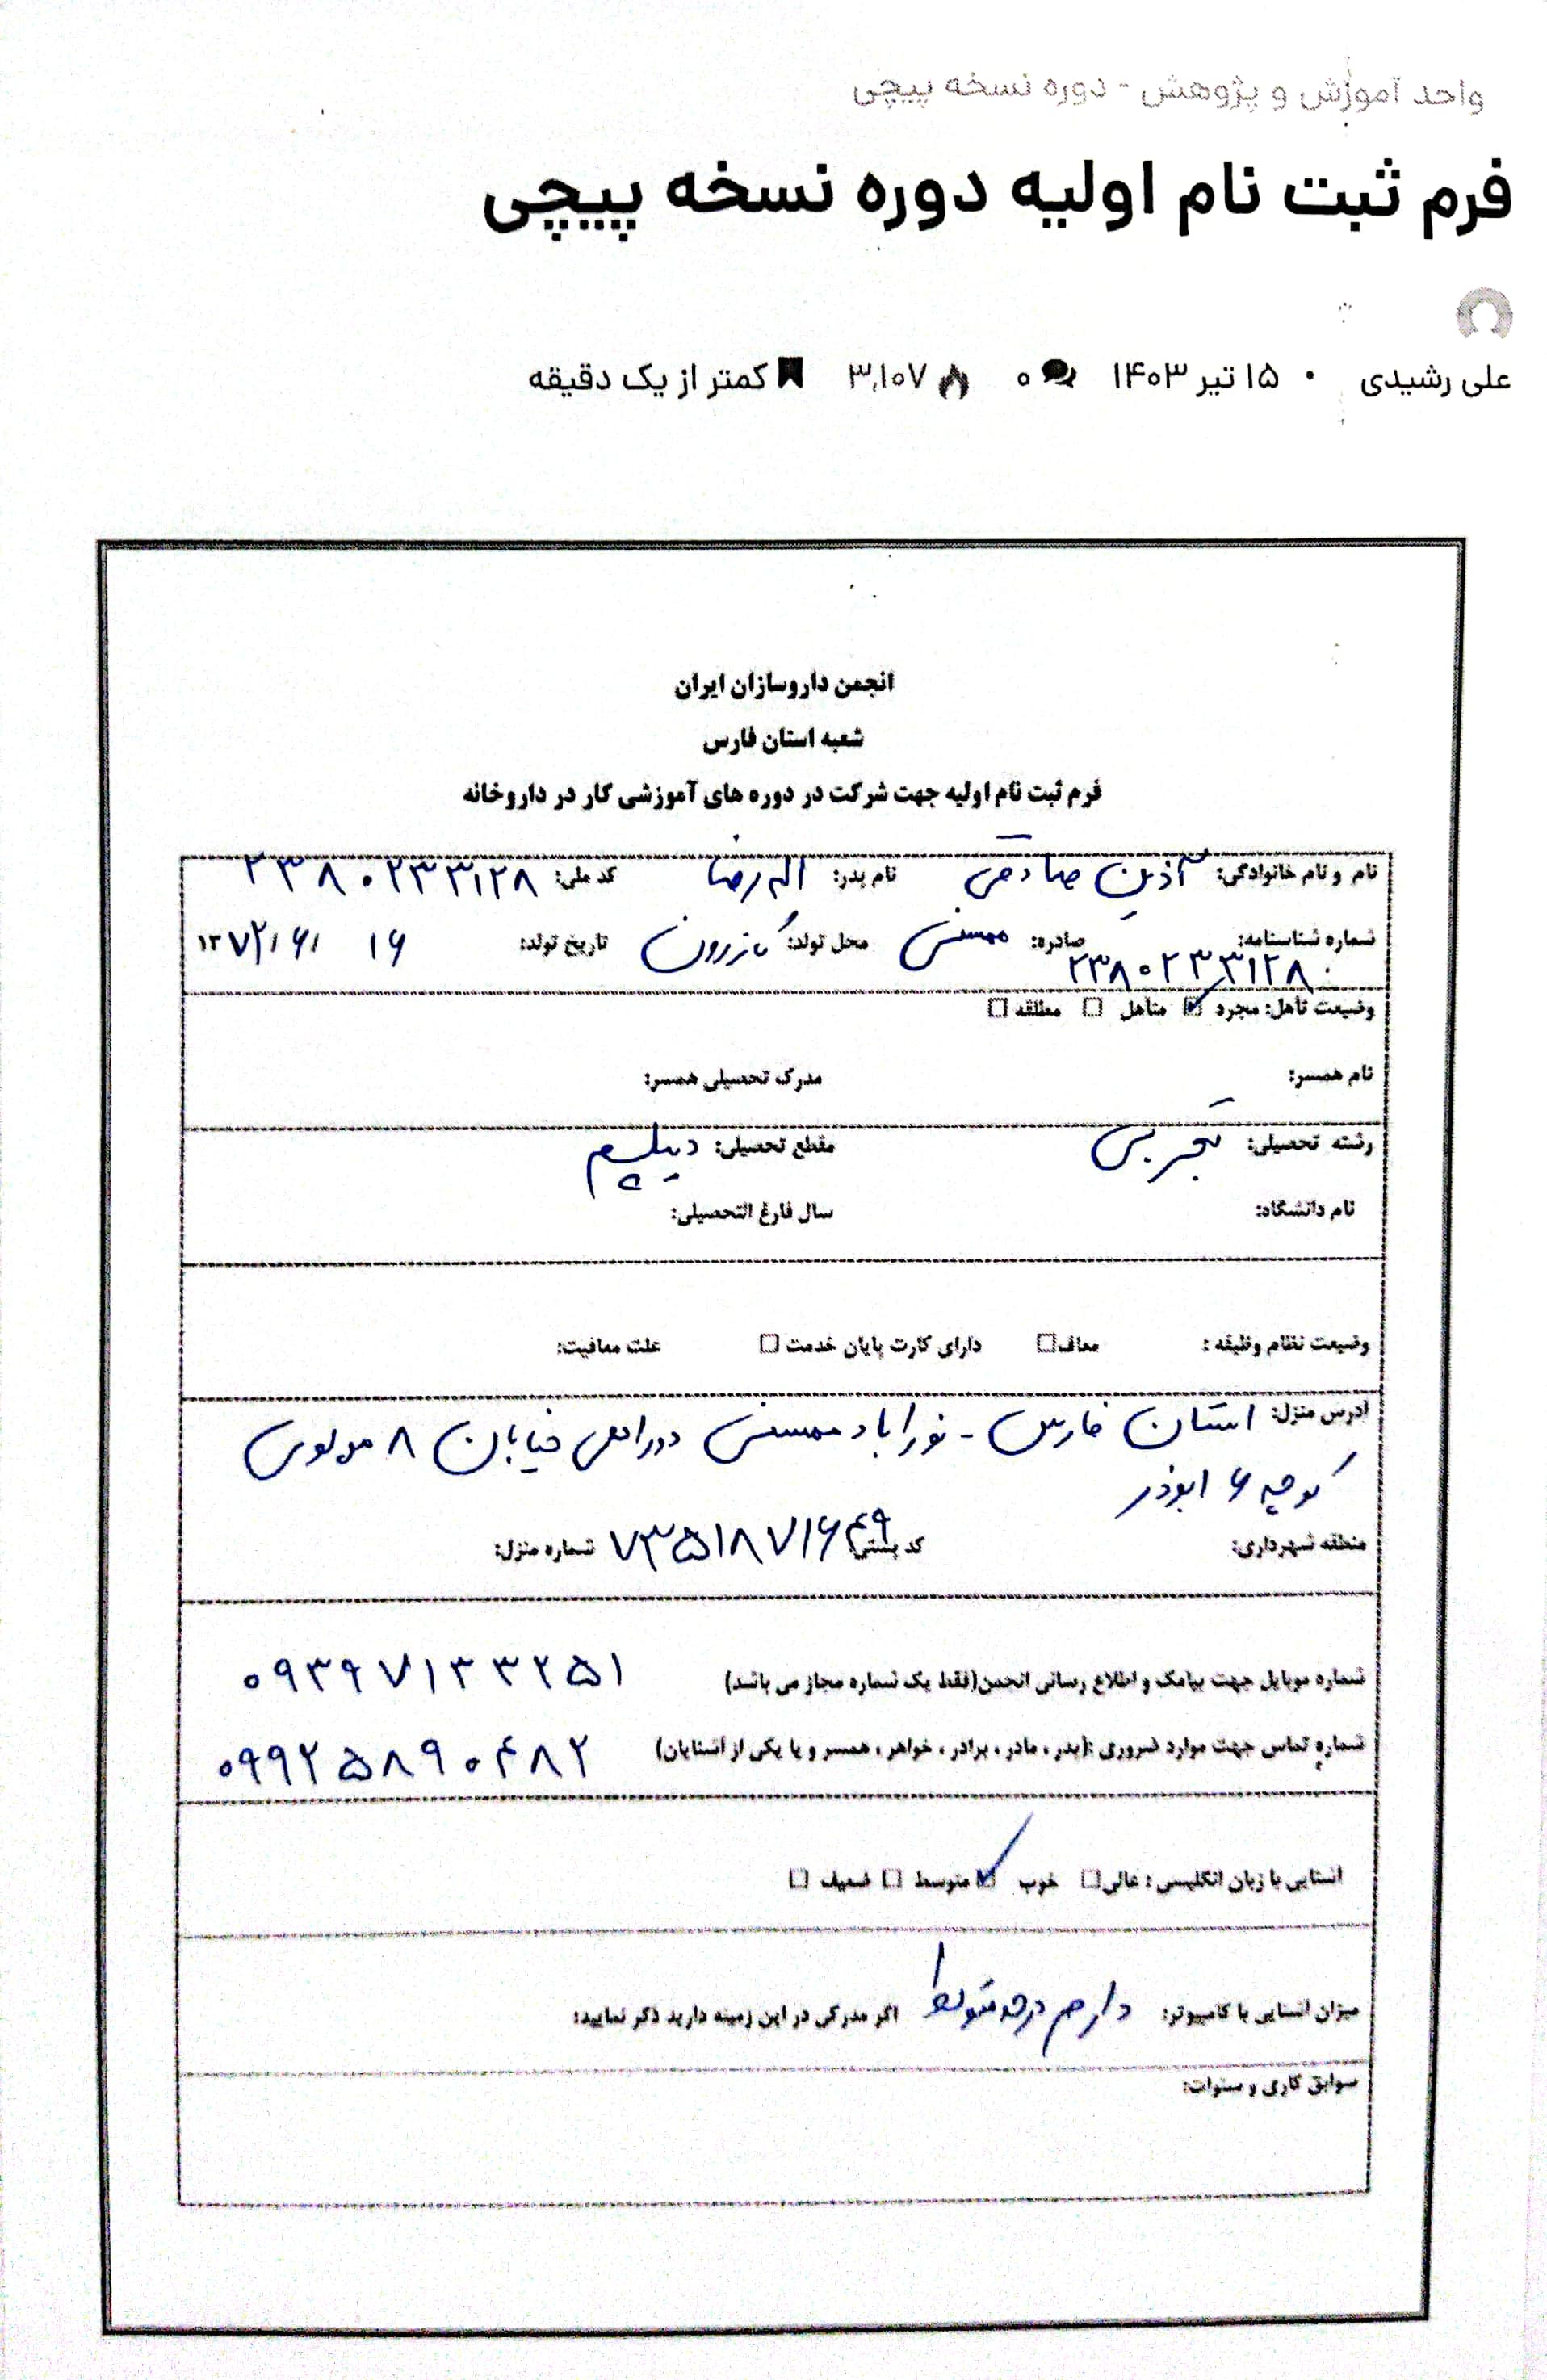 واحد آموزش و پژوهش - دوره نسخه پیچی
فرم ثبت نام اولیه دوره نسخه پیچی
علی رشیدی • ۱۵ تیر ۱۴۰۳ ۰ ۳,۱۰۷ کمتر از یک دقیقه
انجمن داروسازان ایران
شعبه استان فارس
فرم ثبت نام اولیه جهت شرکت در دوره های آموزشی کار در داروخانه
نام و نام خانوادگی: آذین صادقی نام پدر: اله رضا کد ملی: ۲۳۸۰۲۳۳۱۲۸
شماره شناسنامه: ۲۳۸۰۲۳۳۱۲۸ صادره: ممسنی محل تولد: کازرون تاریخ تولد: ۱۶ /۶/ ۱۳۷۲
وضیعت تأهل: مجرد متأهل مطلقه
نام همسر: مدرک تحصیلی همسر:
رشته تحصیلی: تجربی مقطع تحصیلی: دیپلم
نام دانشگاه: سال فارغ التحصیلی:
وضیعت نظام وظیفه : معاف دارای کارت پایان خدمت علت معافیت:
آدرس منزل: استان فارس - نوراباد ممسنی خیابان ۸ مولوی
کوچه ۶ ابوذر
منطقه شهرداری: کد پستی: ۷۳۵۱۸۷۱۶۴۹ شماره منزل:
شماره موبایل جهت پیامک و اطلاع رسانی انجمن(فقط یک شماره مجاز می باشد) ۰۹۳۹۷۱۳۳۲۵۱
شماره تماس جهت موارد ضروری :(پدر ، مادر ، برادر ، خواهر ، همسر و یا یکی از آشنایان) ۰۹۹۲۵۸۹۰۴۸۲
آشنایی با زبان انگلیسی : عالی خوب متوسط ضعیف
میزان آشنایی با کامپیوتر: دارم درحد متوسط اگر مدرکی در این زمینه دارید ذکر نمایید:
سوابق کاری و سنوات: